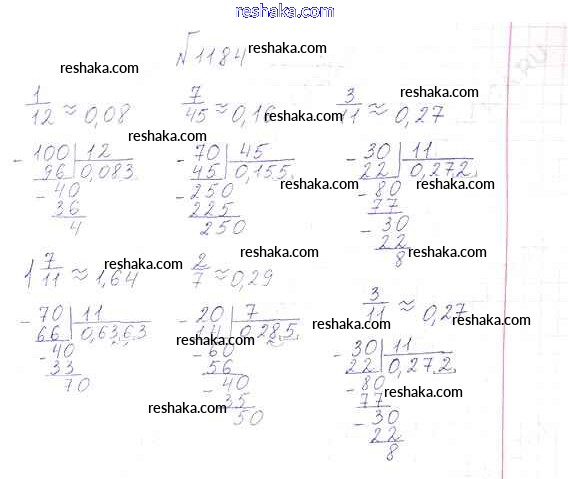 reshaka.com
№1184 reshaka.com
reshaka.com reshaka.com
1/12 ≈ 0,08 7/45 ≈ 0,16 3/11 ≈ 0,27
reshaka.com reshaka.com
reshaka.com
- 100 | 12 - 70 | 45 - 30 | 11
96 | 0,083 45 | 0,155 22 | 0,272
reshaka.com reshaka.com reshaka.com
- 40 - 250 - 80
36 225 77
4 250 - 30
22
8
reshaka.com
1 7/11 ≈ 1,64 2/7 ≈ 0,29 3/11 ≈ 0,27
reshaka.com reshaka.com
reshaka.com
- 70 | 11 - 20 | 7 - 30 | 11
66 | 0,6363 14 | 0,285 22 | 0,272
reshaka.com reshaka.com
- 40 - 60 - 80
33 56 77
70 - 40 - 30
35 22
50 8
reshaka.com reshaka.com
reshaka.com
reshaka.com